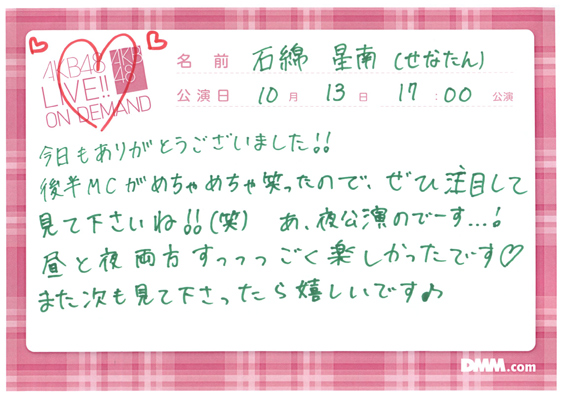 AKB48
LIVE!!
ON DEMAND
AKB
48
名前 石綿 星南 (せなたん)
公演日 10月 13日 17:00 公演
今日もありがとうございました!!
後半MCがめちゃめちゃ笑ったので、ぜひ注目して
見て下さいね!!(笑) あ、夜公演のでーす...!
昼と夜両方すっっっごく楽しかったです♡
また次も見て下さったら嬉しいです♪
DMM.com